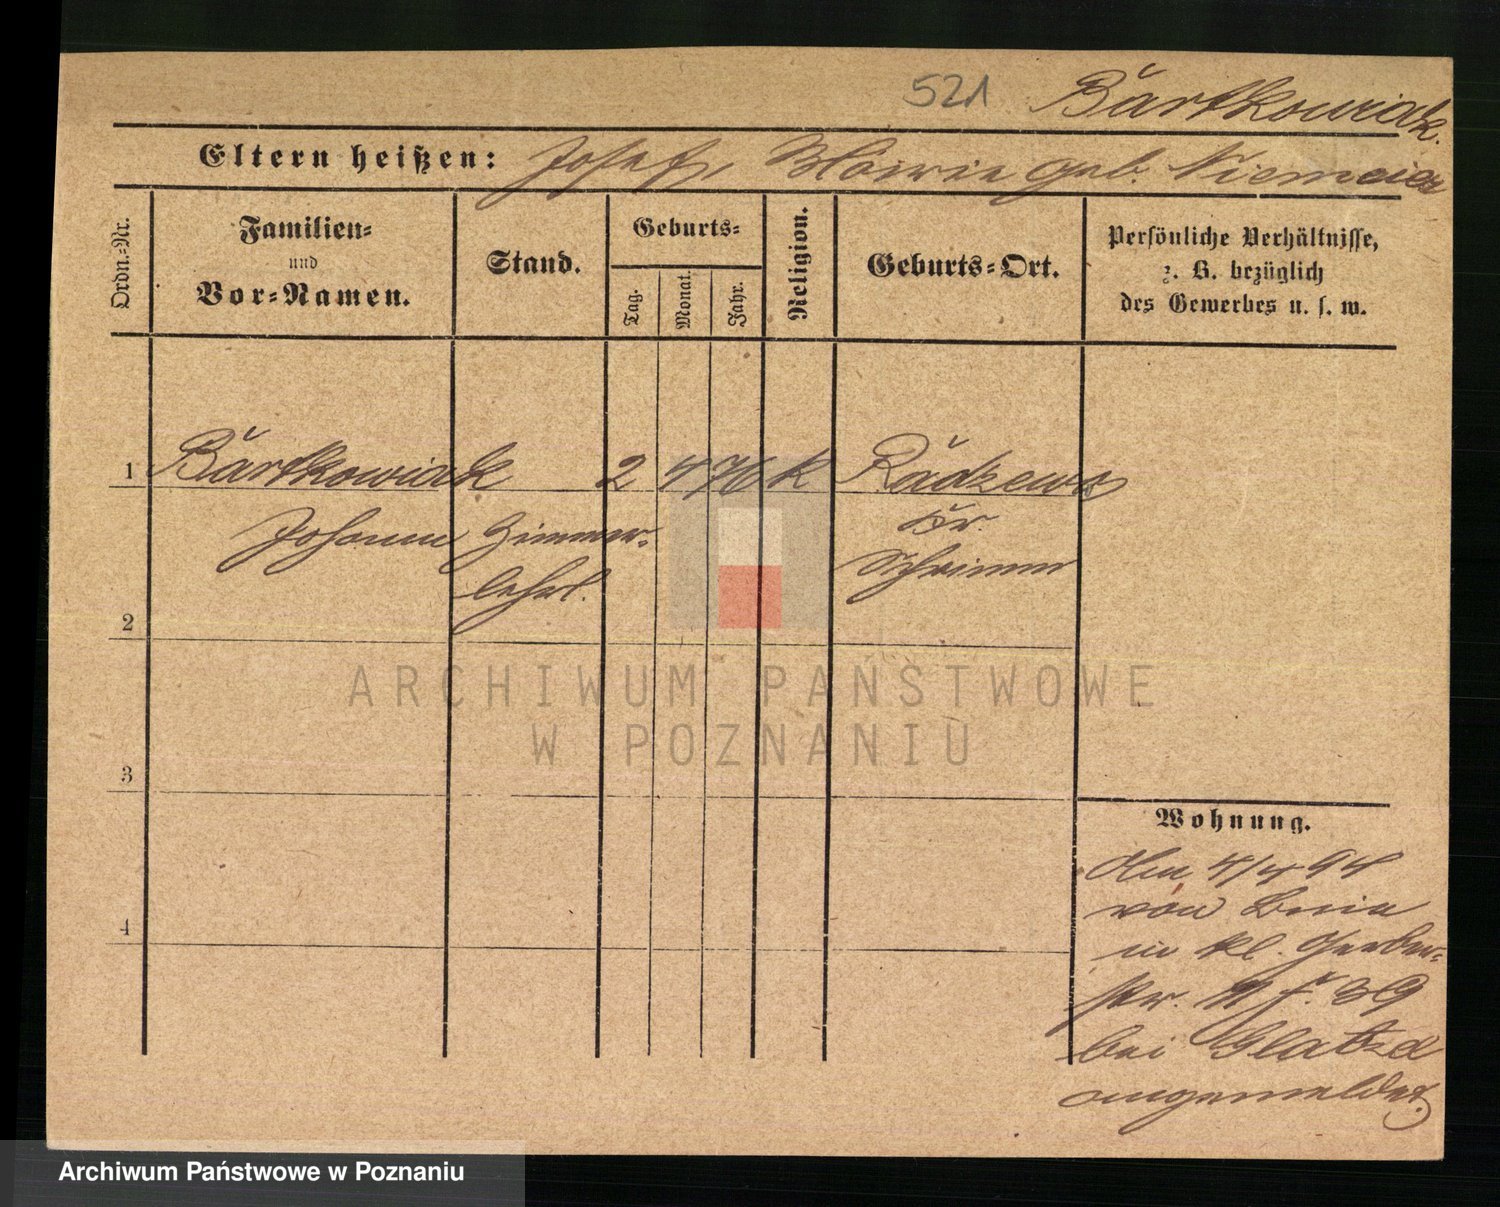 521 Bartkowiak.
Eltern heißen: Josef, Marie geb. Niemeier
Ordn.-Nr.
Familien-
und
Vor-Namen.
Stand.
Geburts-
Tag.
Monat.
Jahr.
Religion.
Geburts-Ort.
Persönliche Verhältnisse,
z. B. bezüglich
des Gewerbes u. s. w.
1 Bartkowiak 2 4 76 K Radzewo
Johann Zimmer- Kr.
lehrl. Schrimm
2
3
4
Wohnung.
Am 4/4 94
von Bnin
in kl. Gerber-
str. 39
bei
angemeldet.
ARCHIWUM PAŃSTWOWE
W POZNANIU
Archiwum Państwowe w Poznaniu